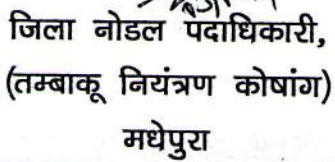 जिला नोडल पदाधिकारी,
(तम्बाकू नियंत्रण कोषांग)
मधेपुरा